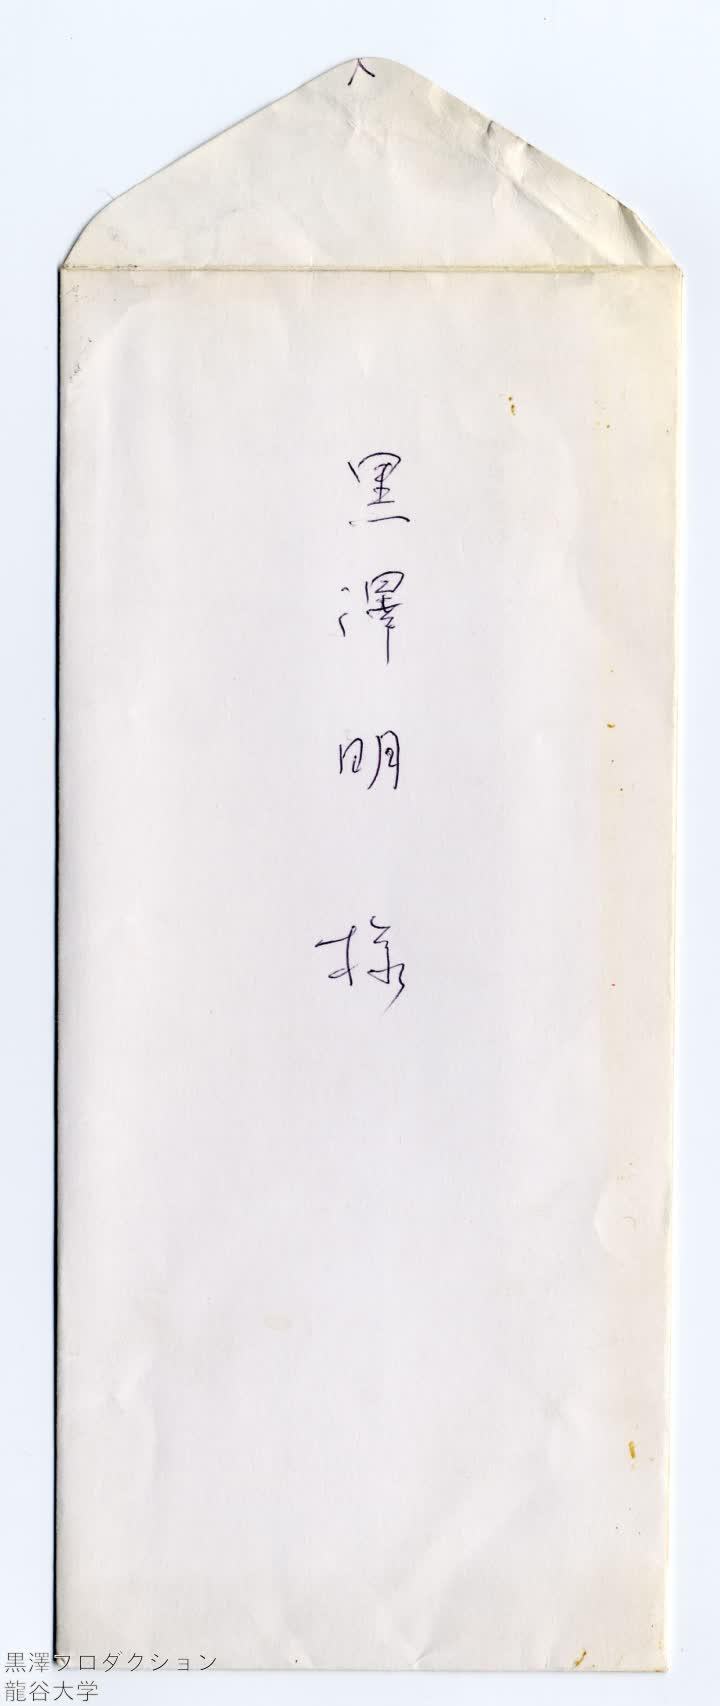 黒澤明 様
黒澤プロダクション
龍谷大学